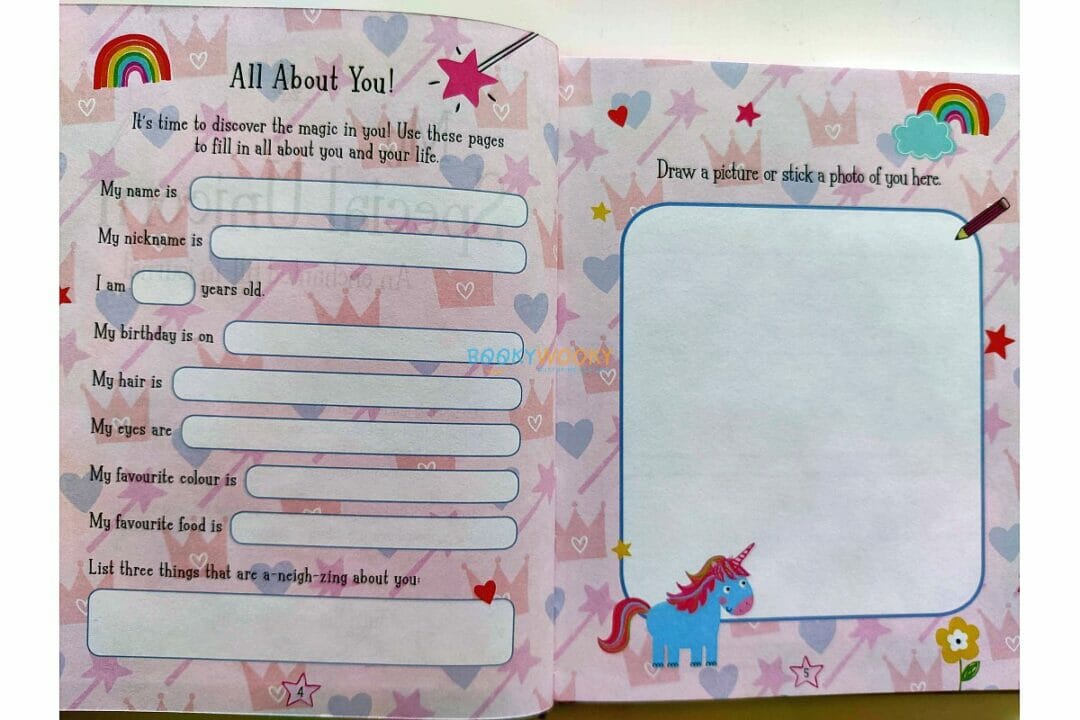 All About You!
It's time to discover the magic in you! Use these pages
to fill in all about you and your life.
My name is
My nickname is
I am years old.
My birthday is on
My hair is
My eyes are
My favourite colour is
My favourite food is
List three things that are a-neigh-zing about you:
4
Draw a picture or stick a photo of you here.
5
BOOKYWOOKY